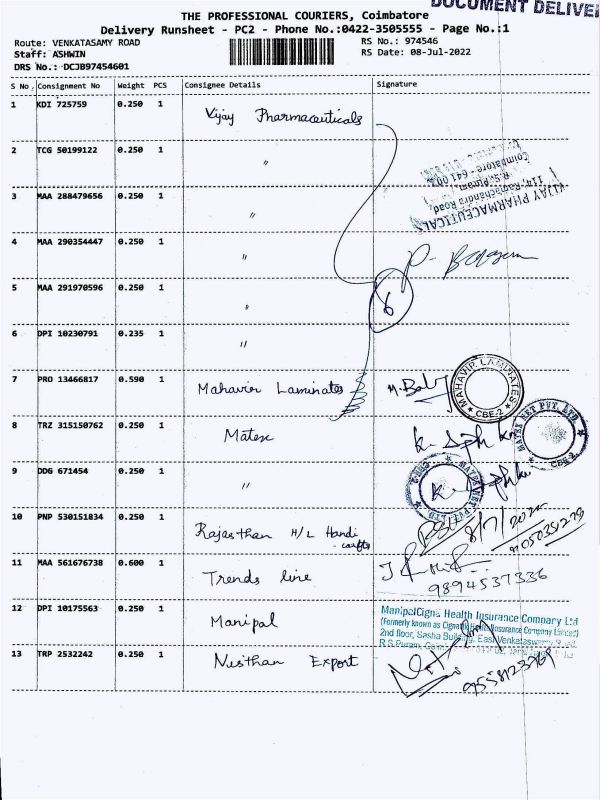 DOCUMENT DELIVER
THE PROFESSIONAL COURIERS, Coimbatore
Delivery Runsheet - PC2 - Phone No.:0422-3505555 - Page No.:1
Route: VENKATASAMY ROAD
RS No.: 974546
Staff: ASHWIN
RS Date: 08-Jul-2022
DRS No.: DCJB97454601
S No. Consignment No Weight PCS Consignee Details Signature
1 KDI 725759 0.250 1 Vijay Pharmaceuticals
2 TCG 50199122 0.250 1 "
VIJAY PHARMACEUTICALS
114, Ramachandra Road,
R.S. Puram,
Coimbatore - 641 002
3 MAA 288479656 0.250 1 "
4 MAA 290354447 0.250 1 "
5 MAA 291970596 0.250 1 "
6
6 DPI 10230791 0.235 1 "
7 PRO 13466817 0.590 1 Mahavir Laminates
MAHAVIR LAMINATES ★ CBE-2 ★
8 TRZ 315150762 0.250 1 Matex
PVT. LTD
CBE-2
9 DDG 671454 0.250 1 "
10 PNP 530151834 0.250 1 Rajasthan H/L Handi
- crafts
8/7/2022
11 MAA 561676738 0.600 1 Trends line
9894537336
12 DPI 10175563 0.250 1 Manipal
ManipalCigna Health Insurance Company Ltd
(Formerly known as CignaTTK Health Insurance Company Limited)
2nd floor, Sasha Building, East Venkatasamy Road
R.S Puram,
13 TRP 2532242 0.250 1 Nisthan Export